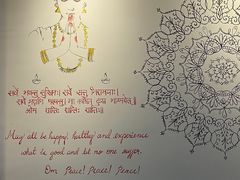 सर्वे भवन्तु सुखिनः। सर्वे सन्तु निरामयाः।
सर्वे भद्राणि पश्यन्तु। मा कश्चित् दुःख भाग्भवेत्॥
ओम शान्तिः शान्तिः शान्तिः॥
May all be happy, healthy and experience
what is good and let no one suffer.
Om Peace! Peace! Peace!